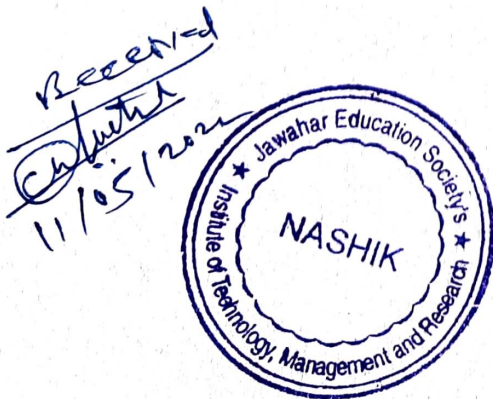 Received
11/05/2022
★ Jawahar Education Society's ★
Institute of Technology, Management and Research
NASHIK